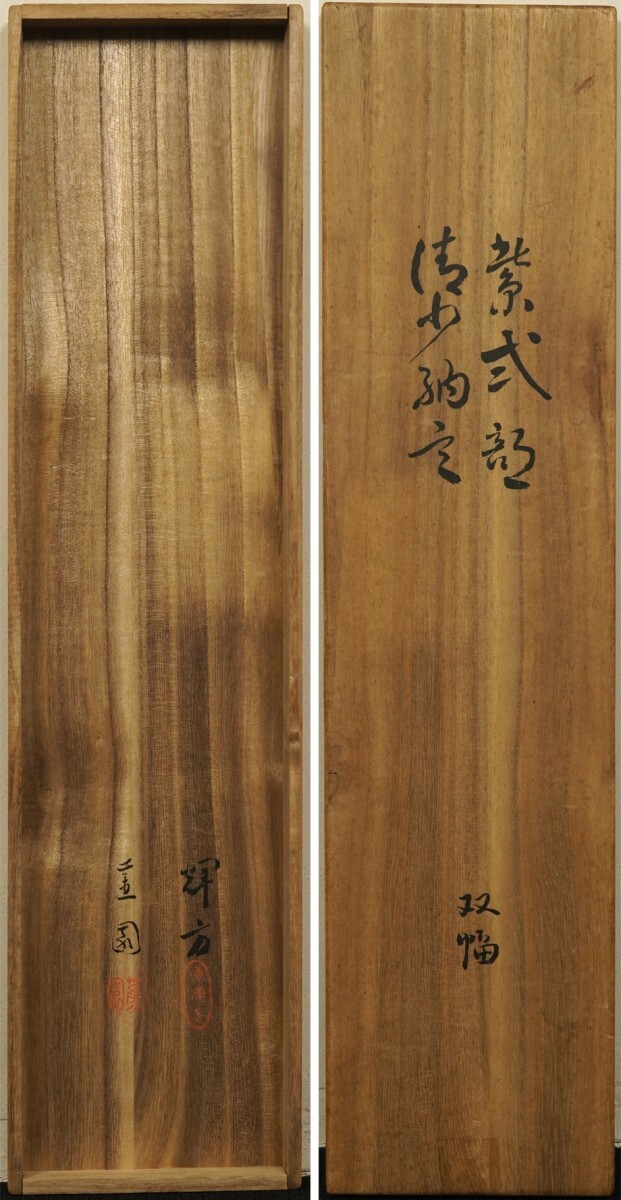 紫式部
清少納言
双幅
輝方
蕉園